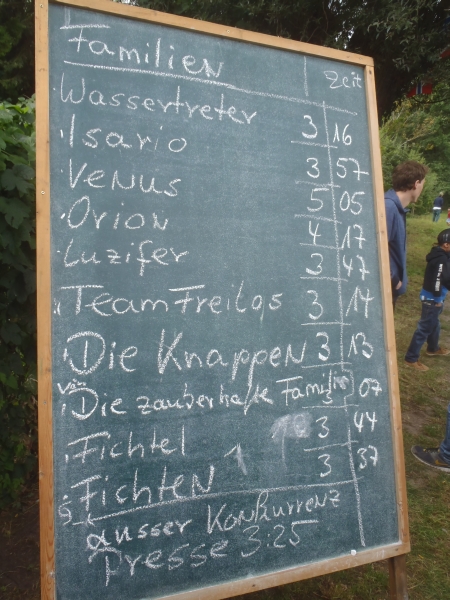 Familien Zeit
Wassertreter 3 16
Isario 3 57
Venus 5 05
Orion 4 17
Luzifer 3 47
Team Freilos 3 14
Die Knappen 3 13
Die zauberhafte Familie 3 07
Fichtel 3 44
Fichten 3 37
ausser Konkurrenz
Presse 3:25